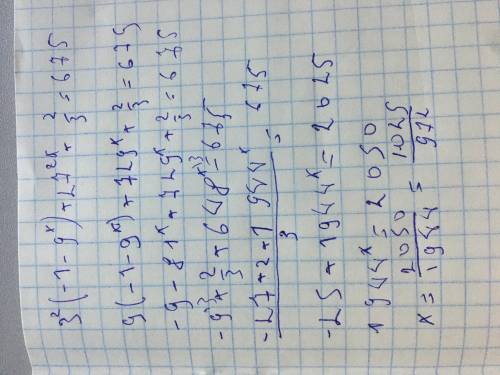 3²(-1-9ˣ)+27²ˣ+2/3=675
9(-1-9ˣ)+729ˣ+2/3=675
-9-81ˣ+729ˣ+2/3=675
-9+2/3+648ˣ=675
-27+2+1944ˣ/3=675
-25+1944ˣ=2025
1944ˣ=2050
x=2050/1944=1025/972